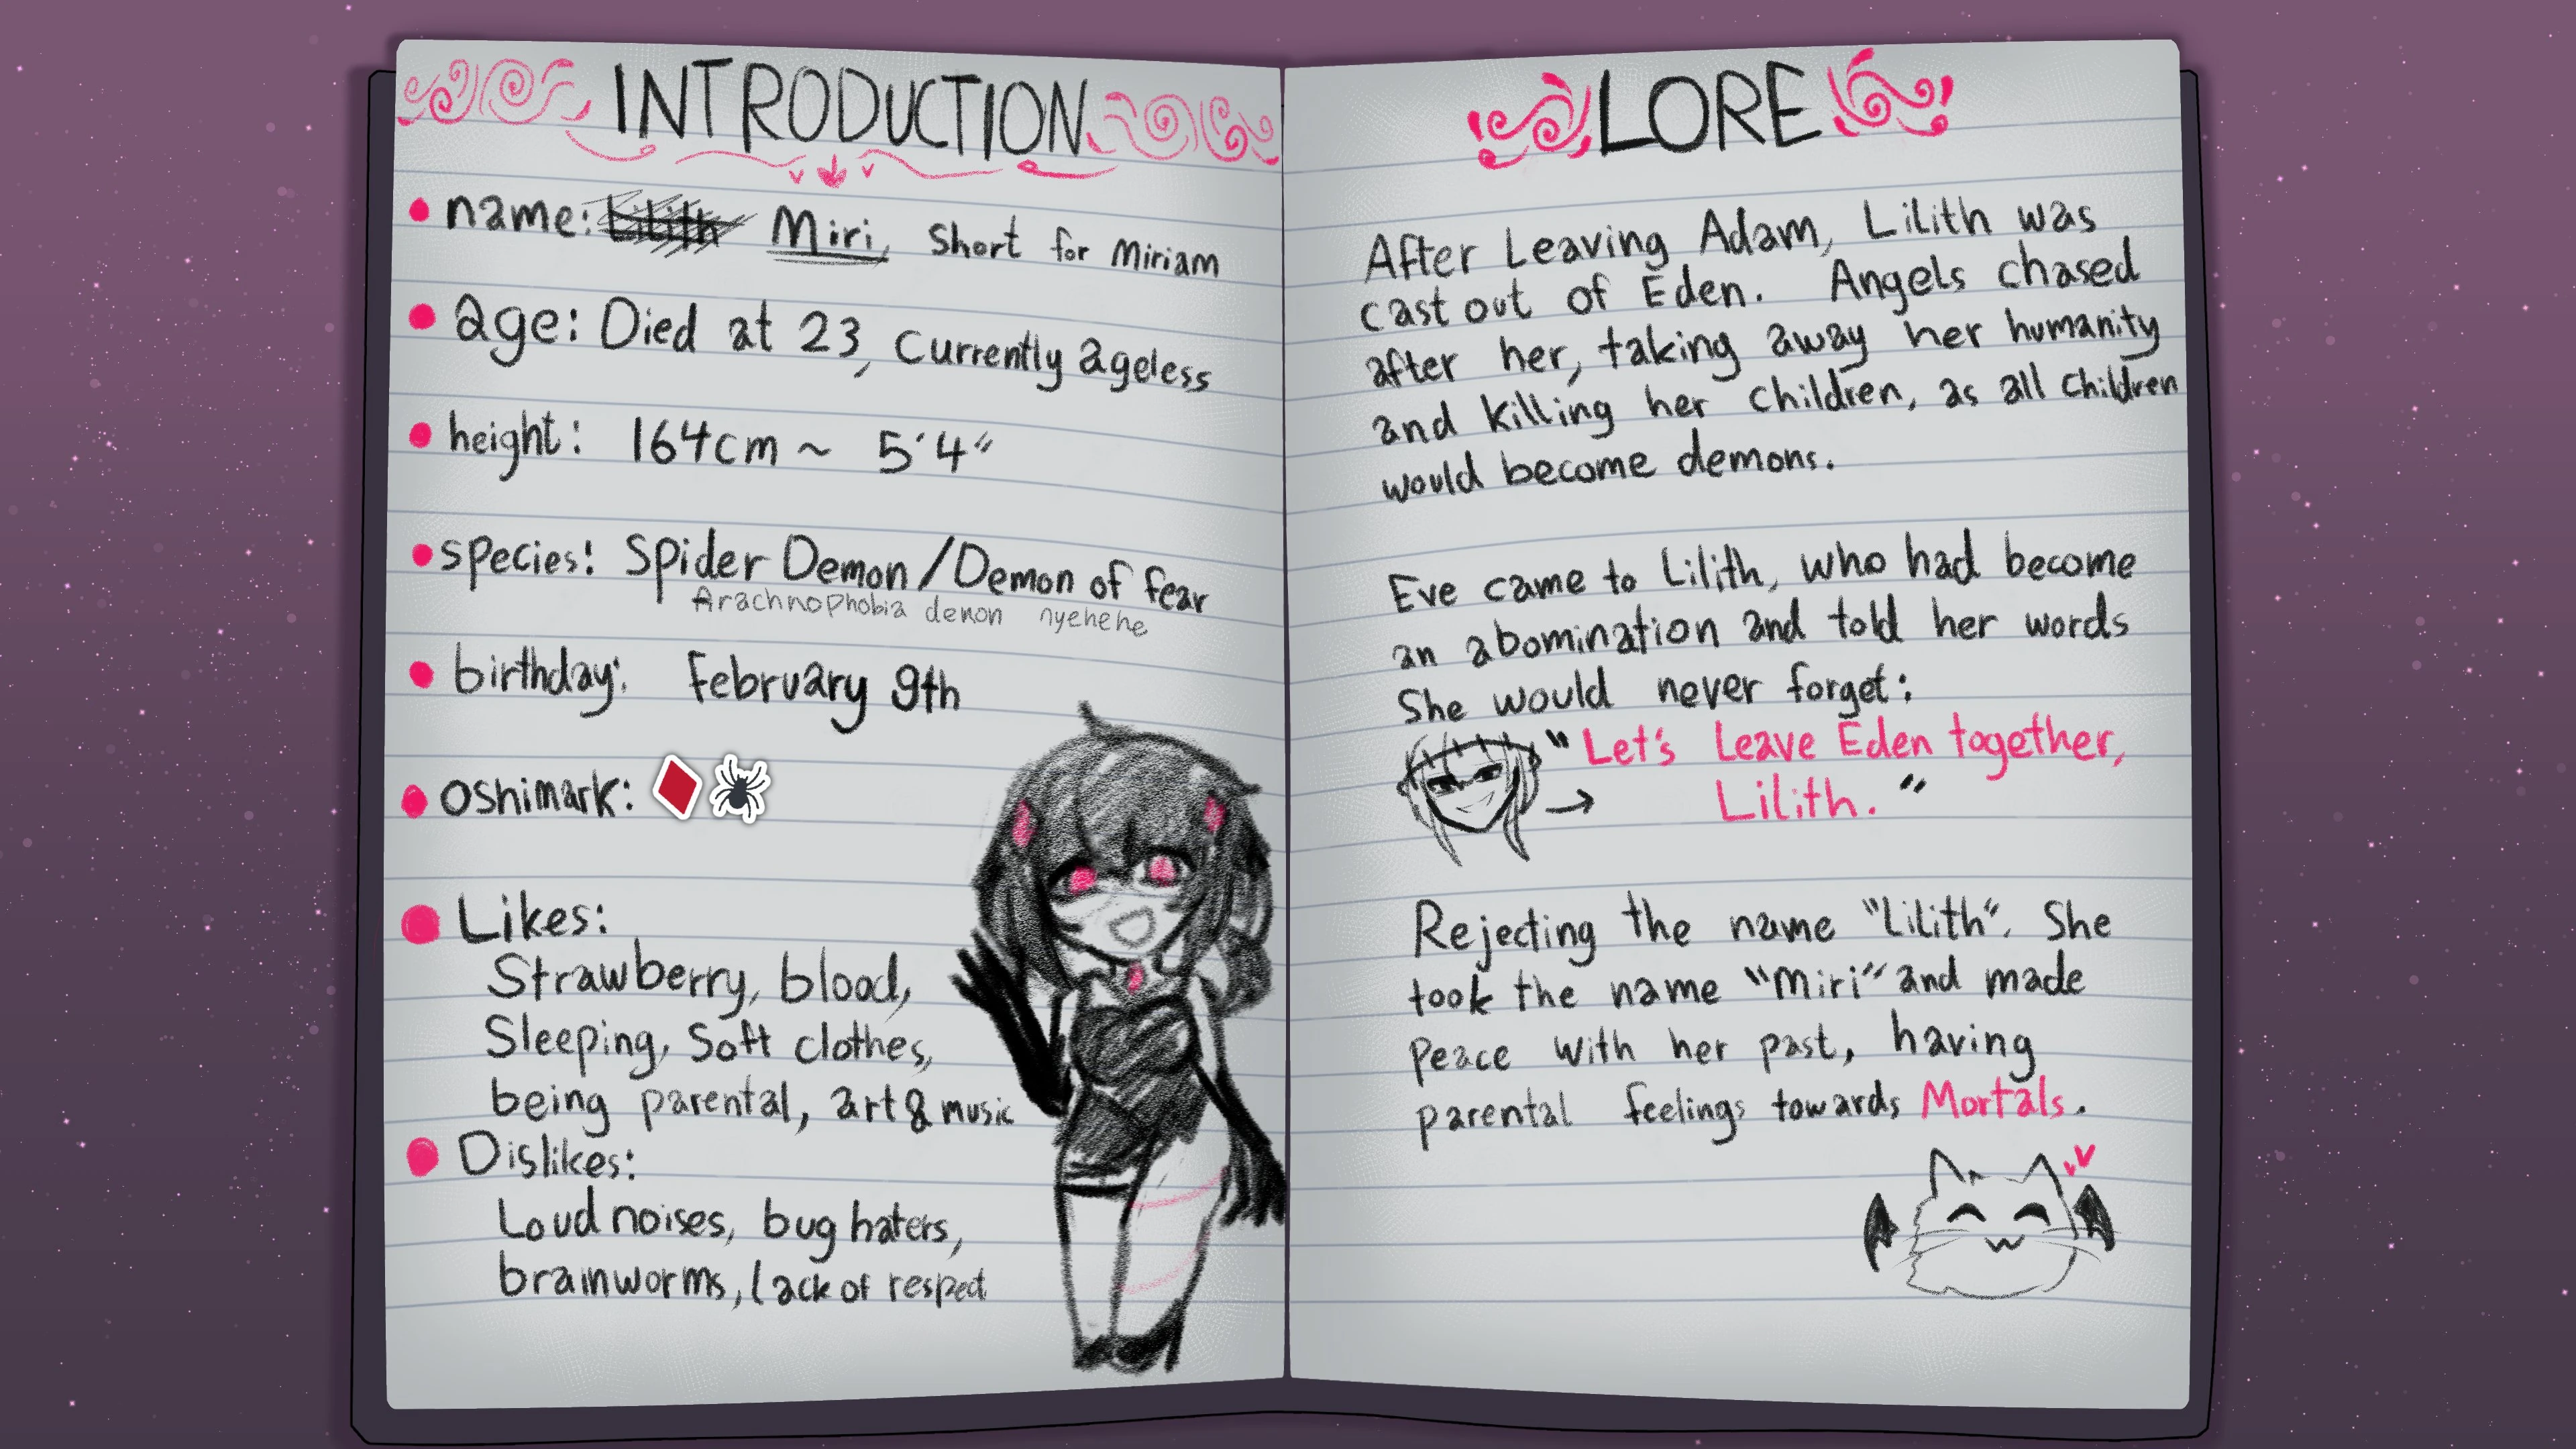 INTRODUCTION
• name: Lilith Miri, Short for Miriam
• age: Died at 23, Currently ageless
• height: 164cm ~ 5'4"
• species: Spider Demon/Demon of fear
Arachnophobia demon nyehehe
• birthday: February 9th
• oshimark: ♦️🕷️
• Likes:
Strawberry, blood,
Sleeping, Soft clothes,
being parental, art & music
• Dislikes:
Loud noises, bug haters,
brainworms, lack of respect
LORE
After Leaving Adam, Lilith was
cast out of Eden. Angels chased
after her, taking away her humanity
and killing her children, as all children
would become demons.
Eve came to Lilith, who had become
an abomination and told her words
She would never forget:
"Let's Leave Eden together,
Lilith."
Rejecting the name "Lilith". She
took the name "Miri" and made
peace with her past, having
parental feelings towards Mortals.